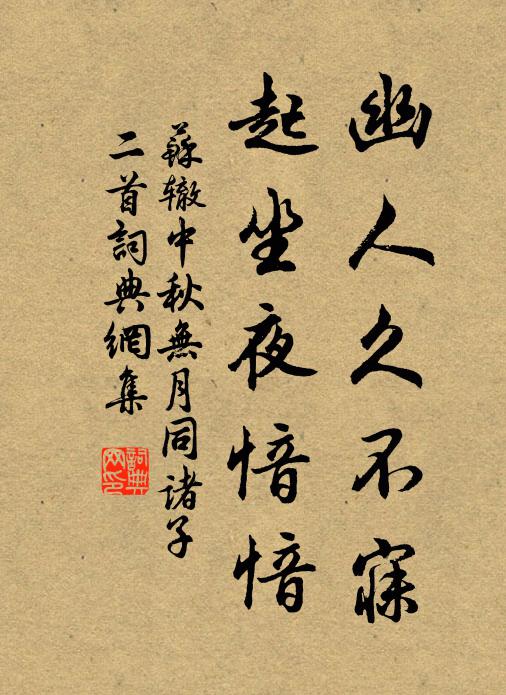 幽人久不寐
起坐夜愔愔
蘇轍中秋無月同諸子
二首詞典網集
詞典
网印